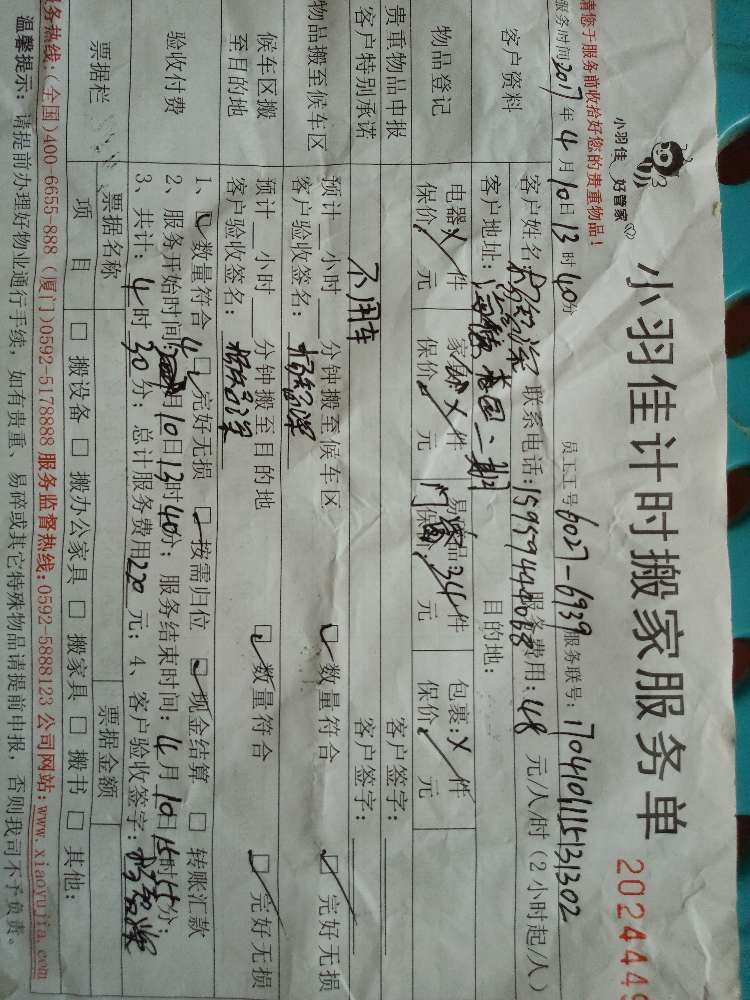 小羽佳计时搬家服务单
2024449
小羽佳 好管家
请您于服务前收拾好您的贵重物品!
员工工号6027-6939服务联号:
服务时间2017年4月10日13时40分
客户资料
客户姓名: 联系电话: 服务费用:48 元/人/时(2小时起/人)
客户地址: 目的地:
物品登记
电器:X件 家俬X件 易碎品 34件 包裹:X件
保价 元 保价 元 保价 元 保价 元
贵重物品申报 客户签字:
客户特别承诺 不用车 客户签字:
物品搬至候车区
预计 小时 分钟搬至候车区 数量符合 完好无损
客户验收签名:
候车区搬至目的地
预计 小时 分钟搬至目的地 数量符合 完好无损
客户验收签名:
验收付费
1、数量符合 完好无损 按需归位 现金结算 转账汇款
2、服务开始时间:4月10日13时40分;服务结束时间:4月10日 时55分;
3、共计:4时30分;总计服务费用220元;4、客户验收签字:
票据栏 票据名称 票据金额
项目 搬设备 搬办公家具 搬家具 搬书 其他:
服务热线:(全国)400 6655-888 (厦门)0592-5178888 服务监督热线:0592-5888123 公司网站:www.xiaoyujia.com
温馨提示:请提前办理好物业通行手续,如有贵重、易碎或其它特殊物品请提前申报,否则我司不予负责。